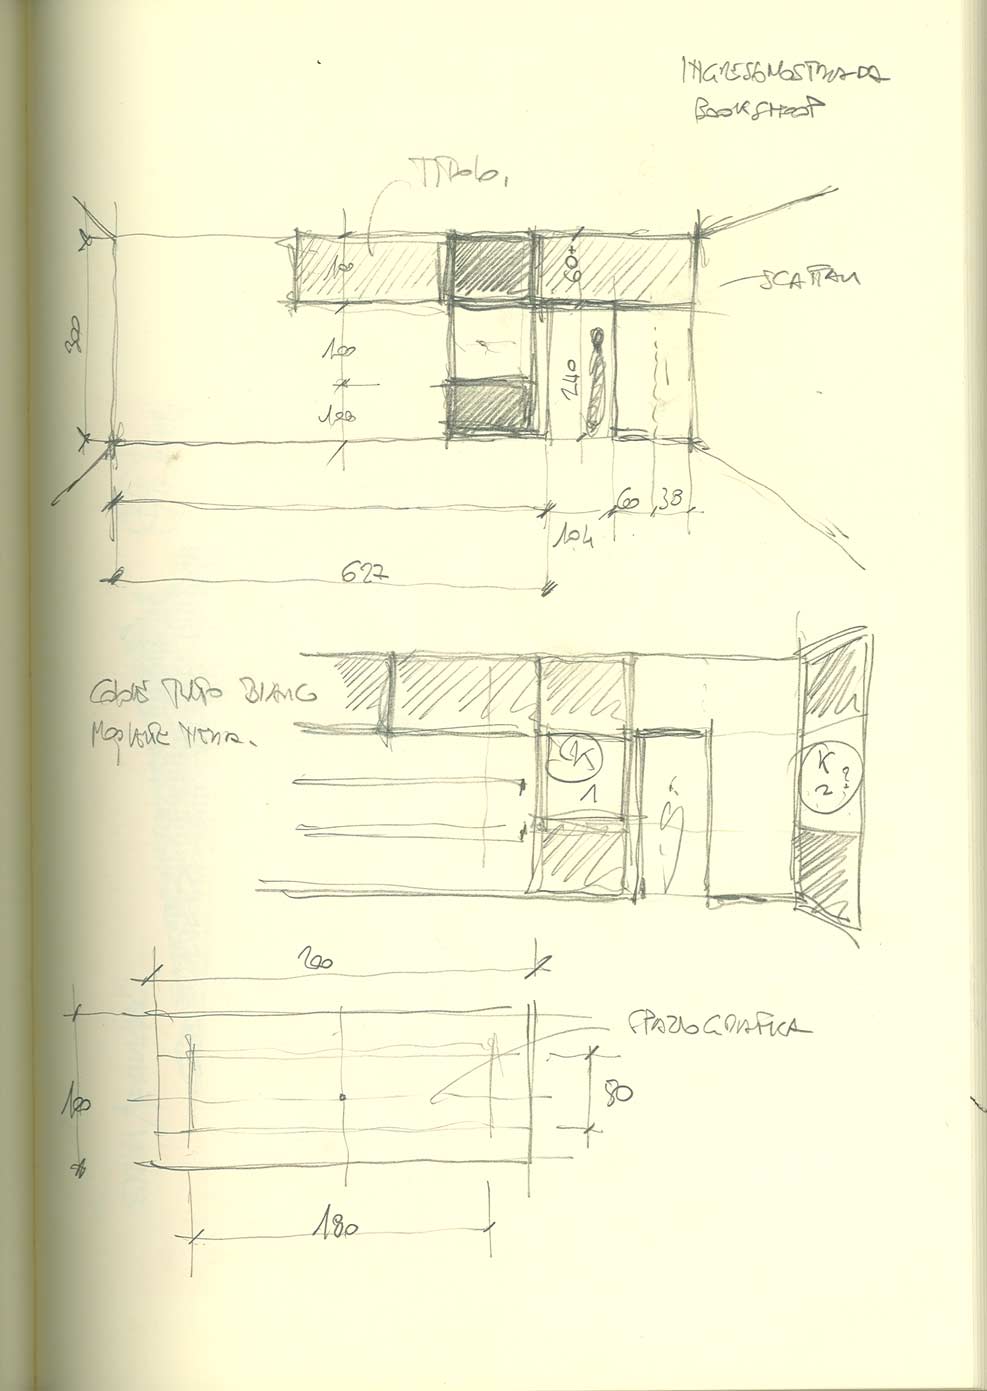 INGRESSO MOSTRA DA
BOOKSHOOP
TITOLO,
100
60+
SCAFFALI
300
100
240
100
60
38
104
627
COLORE TUTTO BIANCO
K
1
K
2 ?
200
SPAZIO GRAFICA
100
80
180